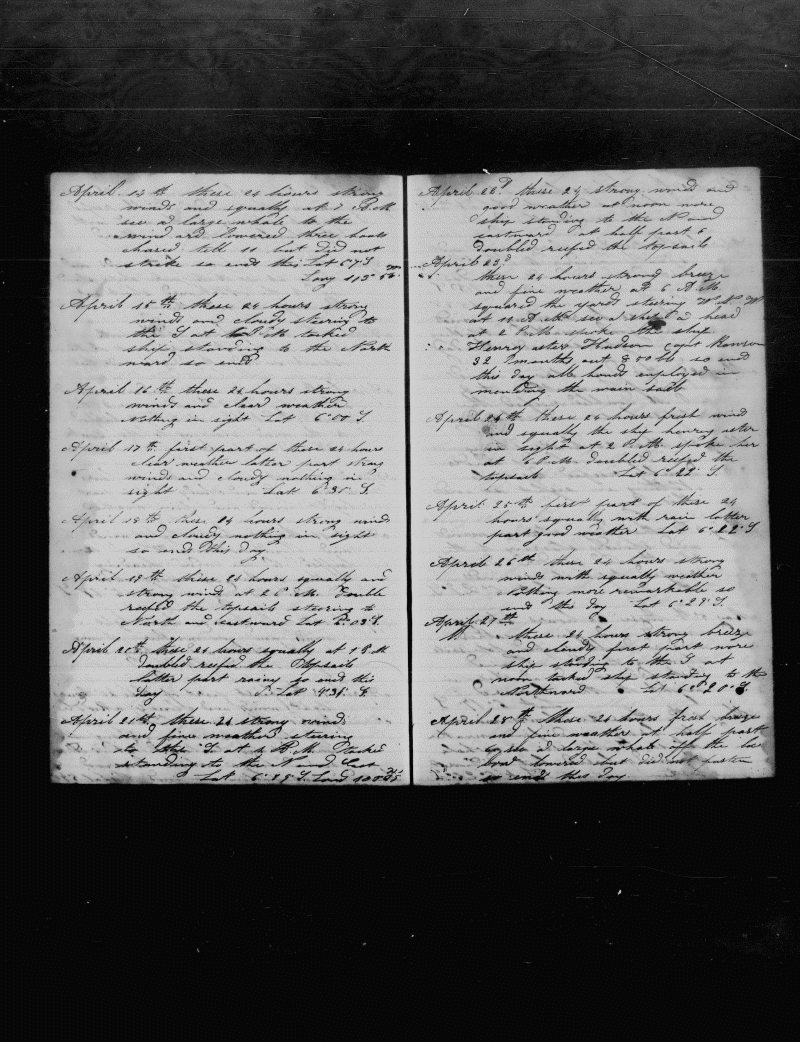 April 14th these 24 hours strong
winds and squally at 7 A.M
see a large whale to the
wind ard lowered three boats
chased till 10 but did not
strike so ends this Lat 6°7 S
Long 113°
April 15th these 24 hours strong
winds and cloudy steering to
the S at P.M tacked
ship standing to the North
ward so ends
April 16th these 24 hours strong
winds and clear weather
Nothing in sight Lat 6°00 S.
April 17th first part of these 24 hours
clear weather latter part strong
winds and cloudy nothing in
sight Lat 6°31' S.
April 18th these 24 hours strong wind
and cloudy nothing in sight
so ends this Day
April 19th these 24 hours squally and
strong wind at 2 P.M. Double
reefed the topsails steering to
North and eastward Lat 03' S.
April 20th these 24 hours squally at 1 P.M
doubled reefed the Topsails
latter part rainy so ends this
Day Lat 31' S.
April 21th these 24 strong winds
and fine weather stearing
to the S at 4 P.M. tacked
standing to the N and East
Lat 6° S. Long 108°
April 22d these 24 strong winds and
good weather at noon wore
ship standing to the N and
eastward at half past 6
Doubled reefed the topsails
April 23d
these 24 hours strong breeze
and fine weather at 6 A.M.
squared the yards stearing W N W
at 11 A.M. see a ship a head
at 2 P.M. spoke the ship
Henrey aster Hudson capt Rawson
32 months out 800 bb so end
this day all hands employed in
mending the main sail
April 24th these 24 hours fresh wind
and squally the ship henrey aster
in sight at 2 P.M. spoke her
at 6 P.M. doubled reefed the
topsails Lat 6°28' S
April 25th first part of these 24
hours squally with rain latter
part good weather Lat 6°22' S
April 26th these 24 hours strong
winds with squally weather
Nothing more remarkable so
end this Day Lat 6°29' S.
April 27th
these 24 hours strong breeze
and cloudy first part wore
ship standing to the S at
noon tacked ship standing to the
Northward Lat 6°20' S.
April 28th these 24 hours fresh breeze
and fine weather at half past
see a large whale off the lee
bow lowered but did not fasten
so ends this Day